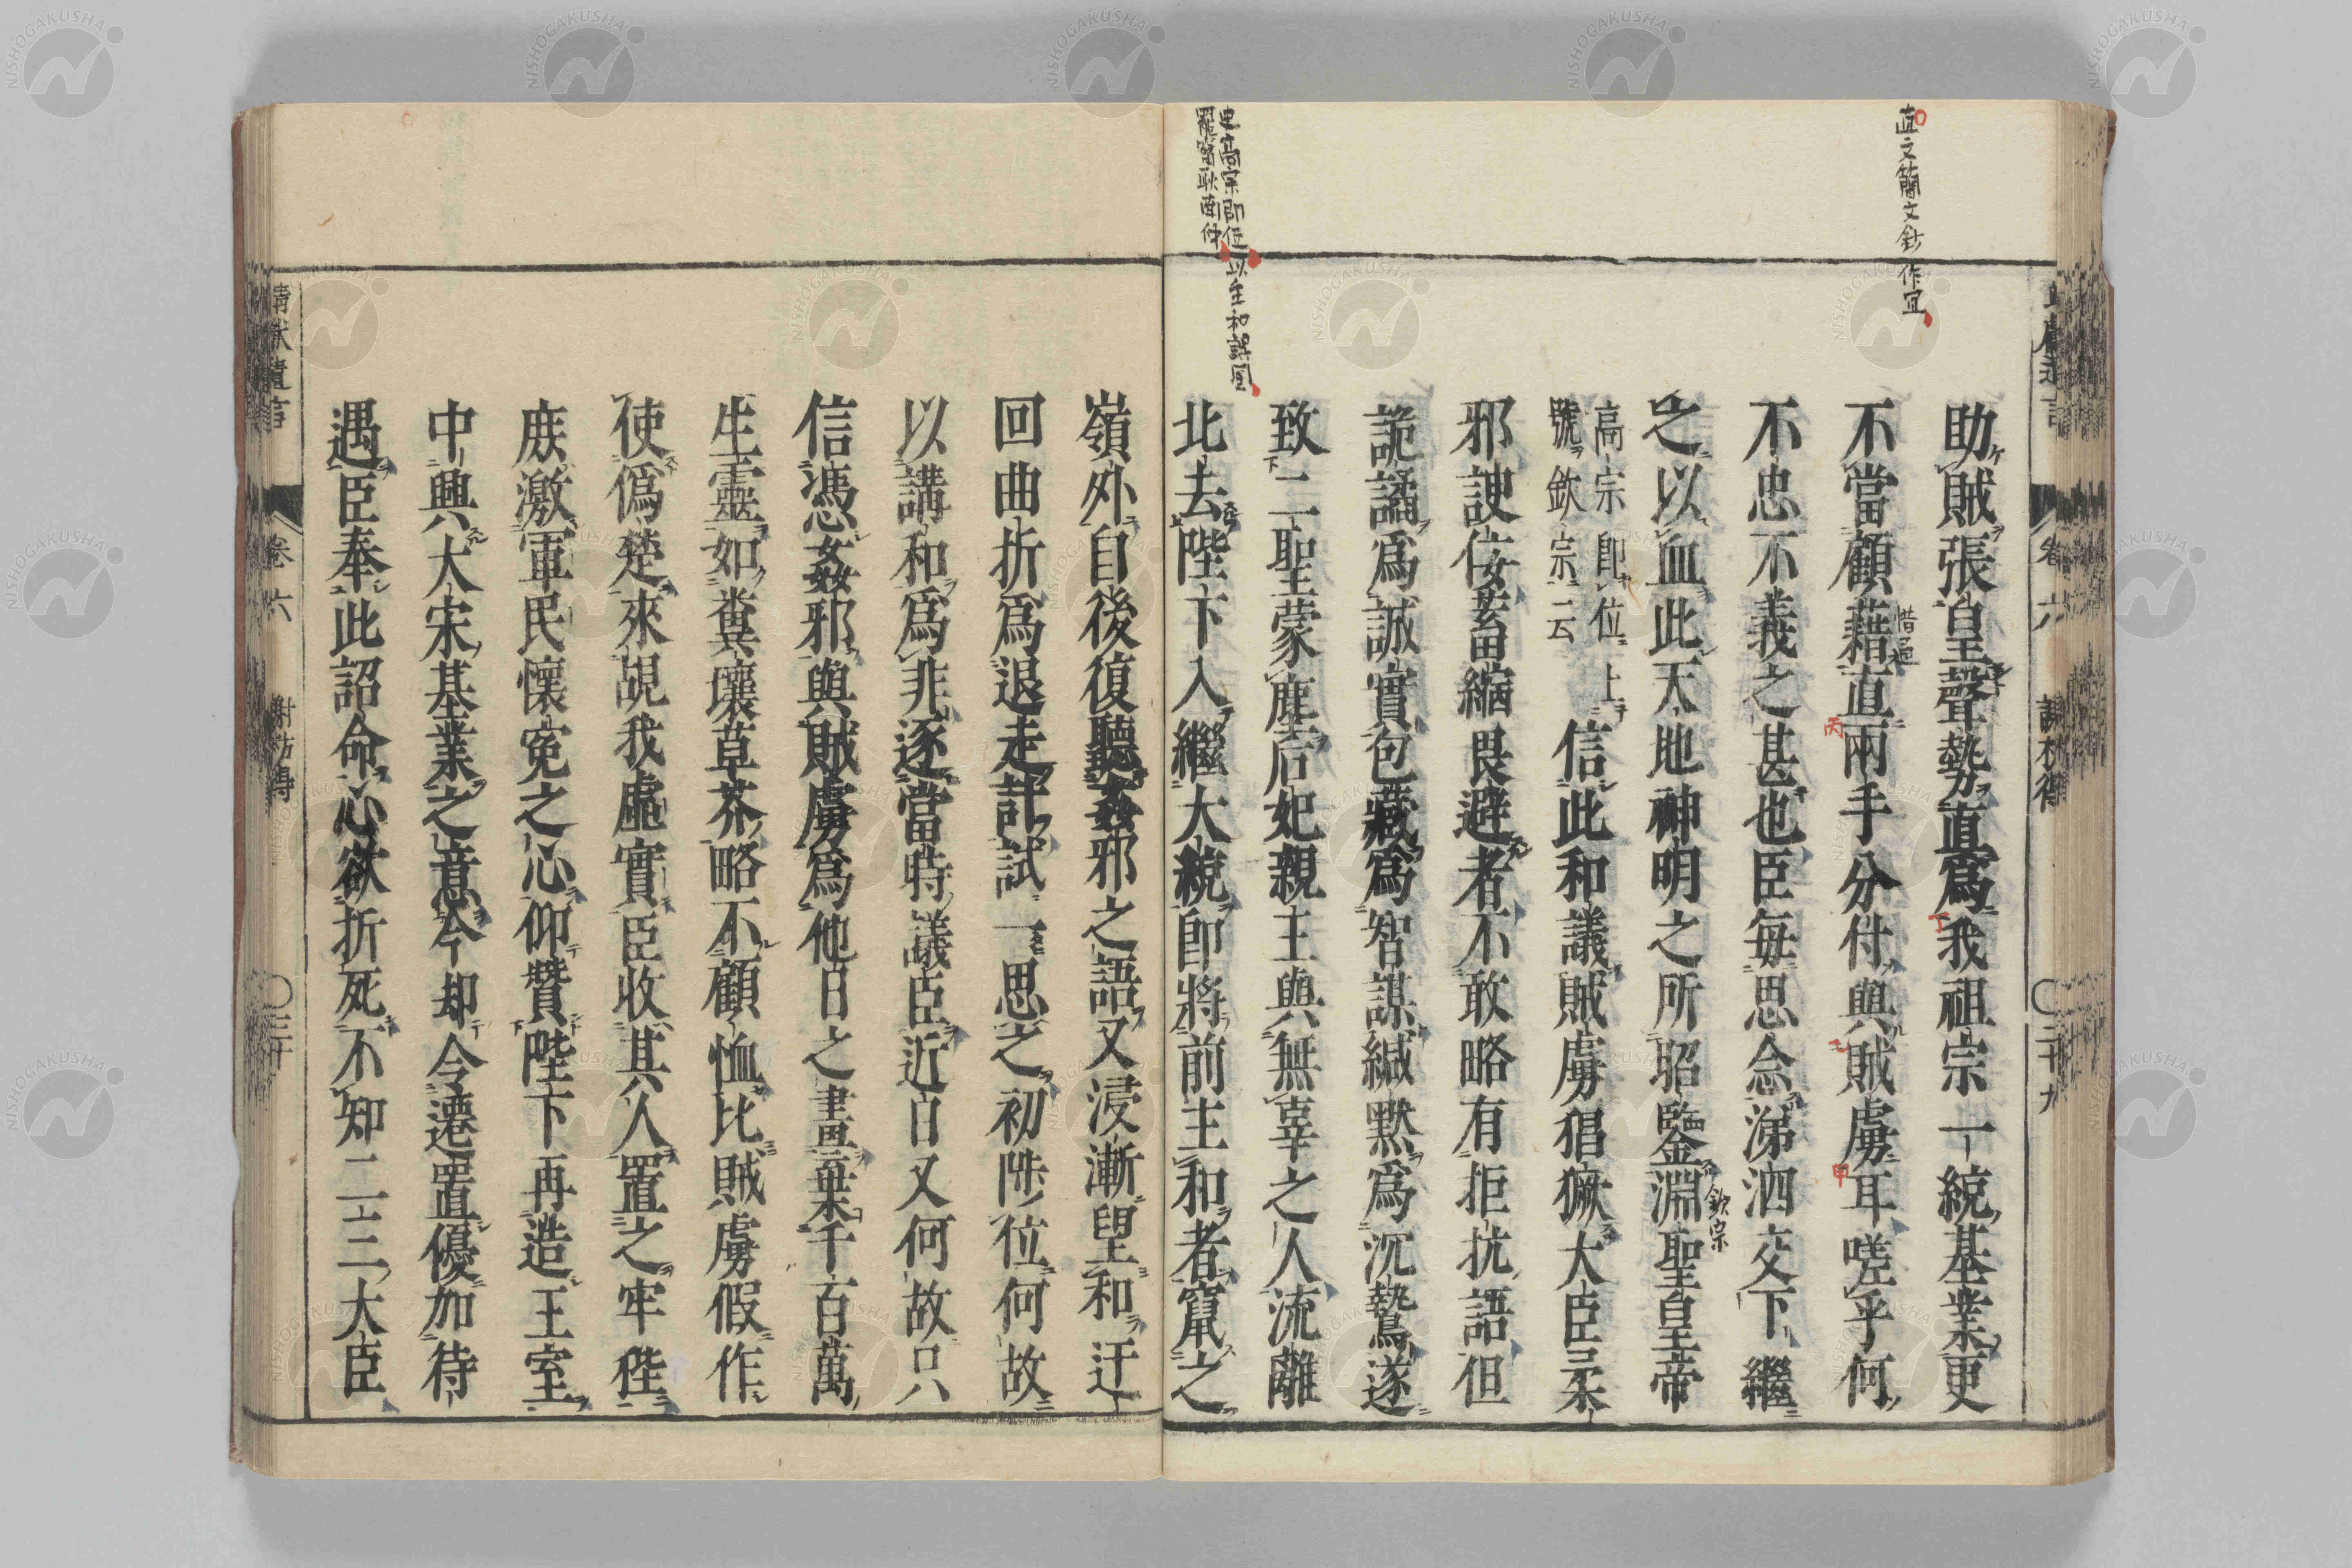 直文簡文鈔作宜
助賊張皇聲勢直爲我祖宗一統基業更
不當顧藉直兩手分付與賊虜耳嗟乎何
不忠不義之甚也臣每思念涕泗交下繼
之以血此天地神明之所昭鑒淵聖皇帝
欽宗
高宗卽位上
號欽宗云
信此和議賊虜猖獗大臣柔
邪諛佞畜縮畏避者不敢略有拒抗語但
詭譎爲誠實包藏爲智謀緘默爲沉鷙遂
致二聖蒙塵后妃親王與無辜之人流離
北去陛下入繼大統卽將前主和者竄之
史高宗卽位以主和誤国
罷竄耿南仲
嶺外自後復聽姦邪之語又浸漸望和迂
回曲折爲退走計試一思之初陟位何故
以講和爲非逐當時議臣近日又何故只
信憑姦邪與賊虜爲他日之畫棄千百萬
生靈如糞壤草芥略不顧恤比賊虜假作
使僞楚來覘我虛實臣收其人置之牢狴
庶激軍民懷寃之心仰贊陛下再造王室
中興大宋基業之意今却令遷置優加待
遇臣奉此詔命心欲折死不知二三大臣
靖獻遺言
卷六
謝枋得
〇三十
卷六
謝枋得
〇二十九